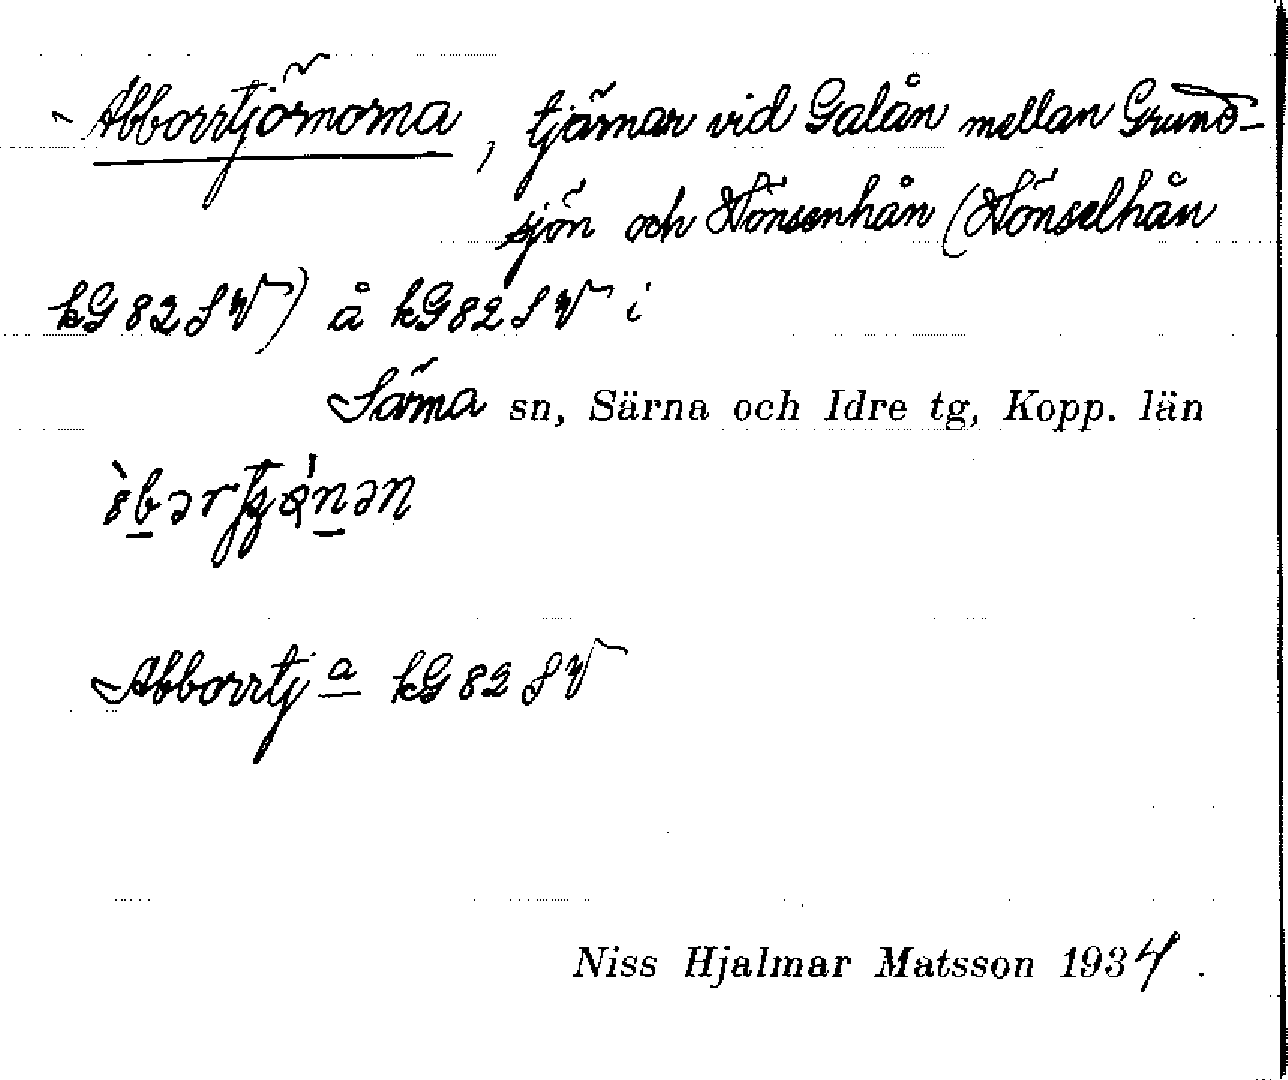 Abborrtjörnorna, tjärnar vid Galån mellan Grund-
sjön och Hönsenhån (Hönselhån
kG82SV) å kG82SV i
Särna sn, Särna och Idre tg, Kopp. län
Abborrtj a kG82SV
Niss Hjalmar Matsson 1934.